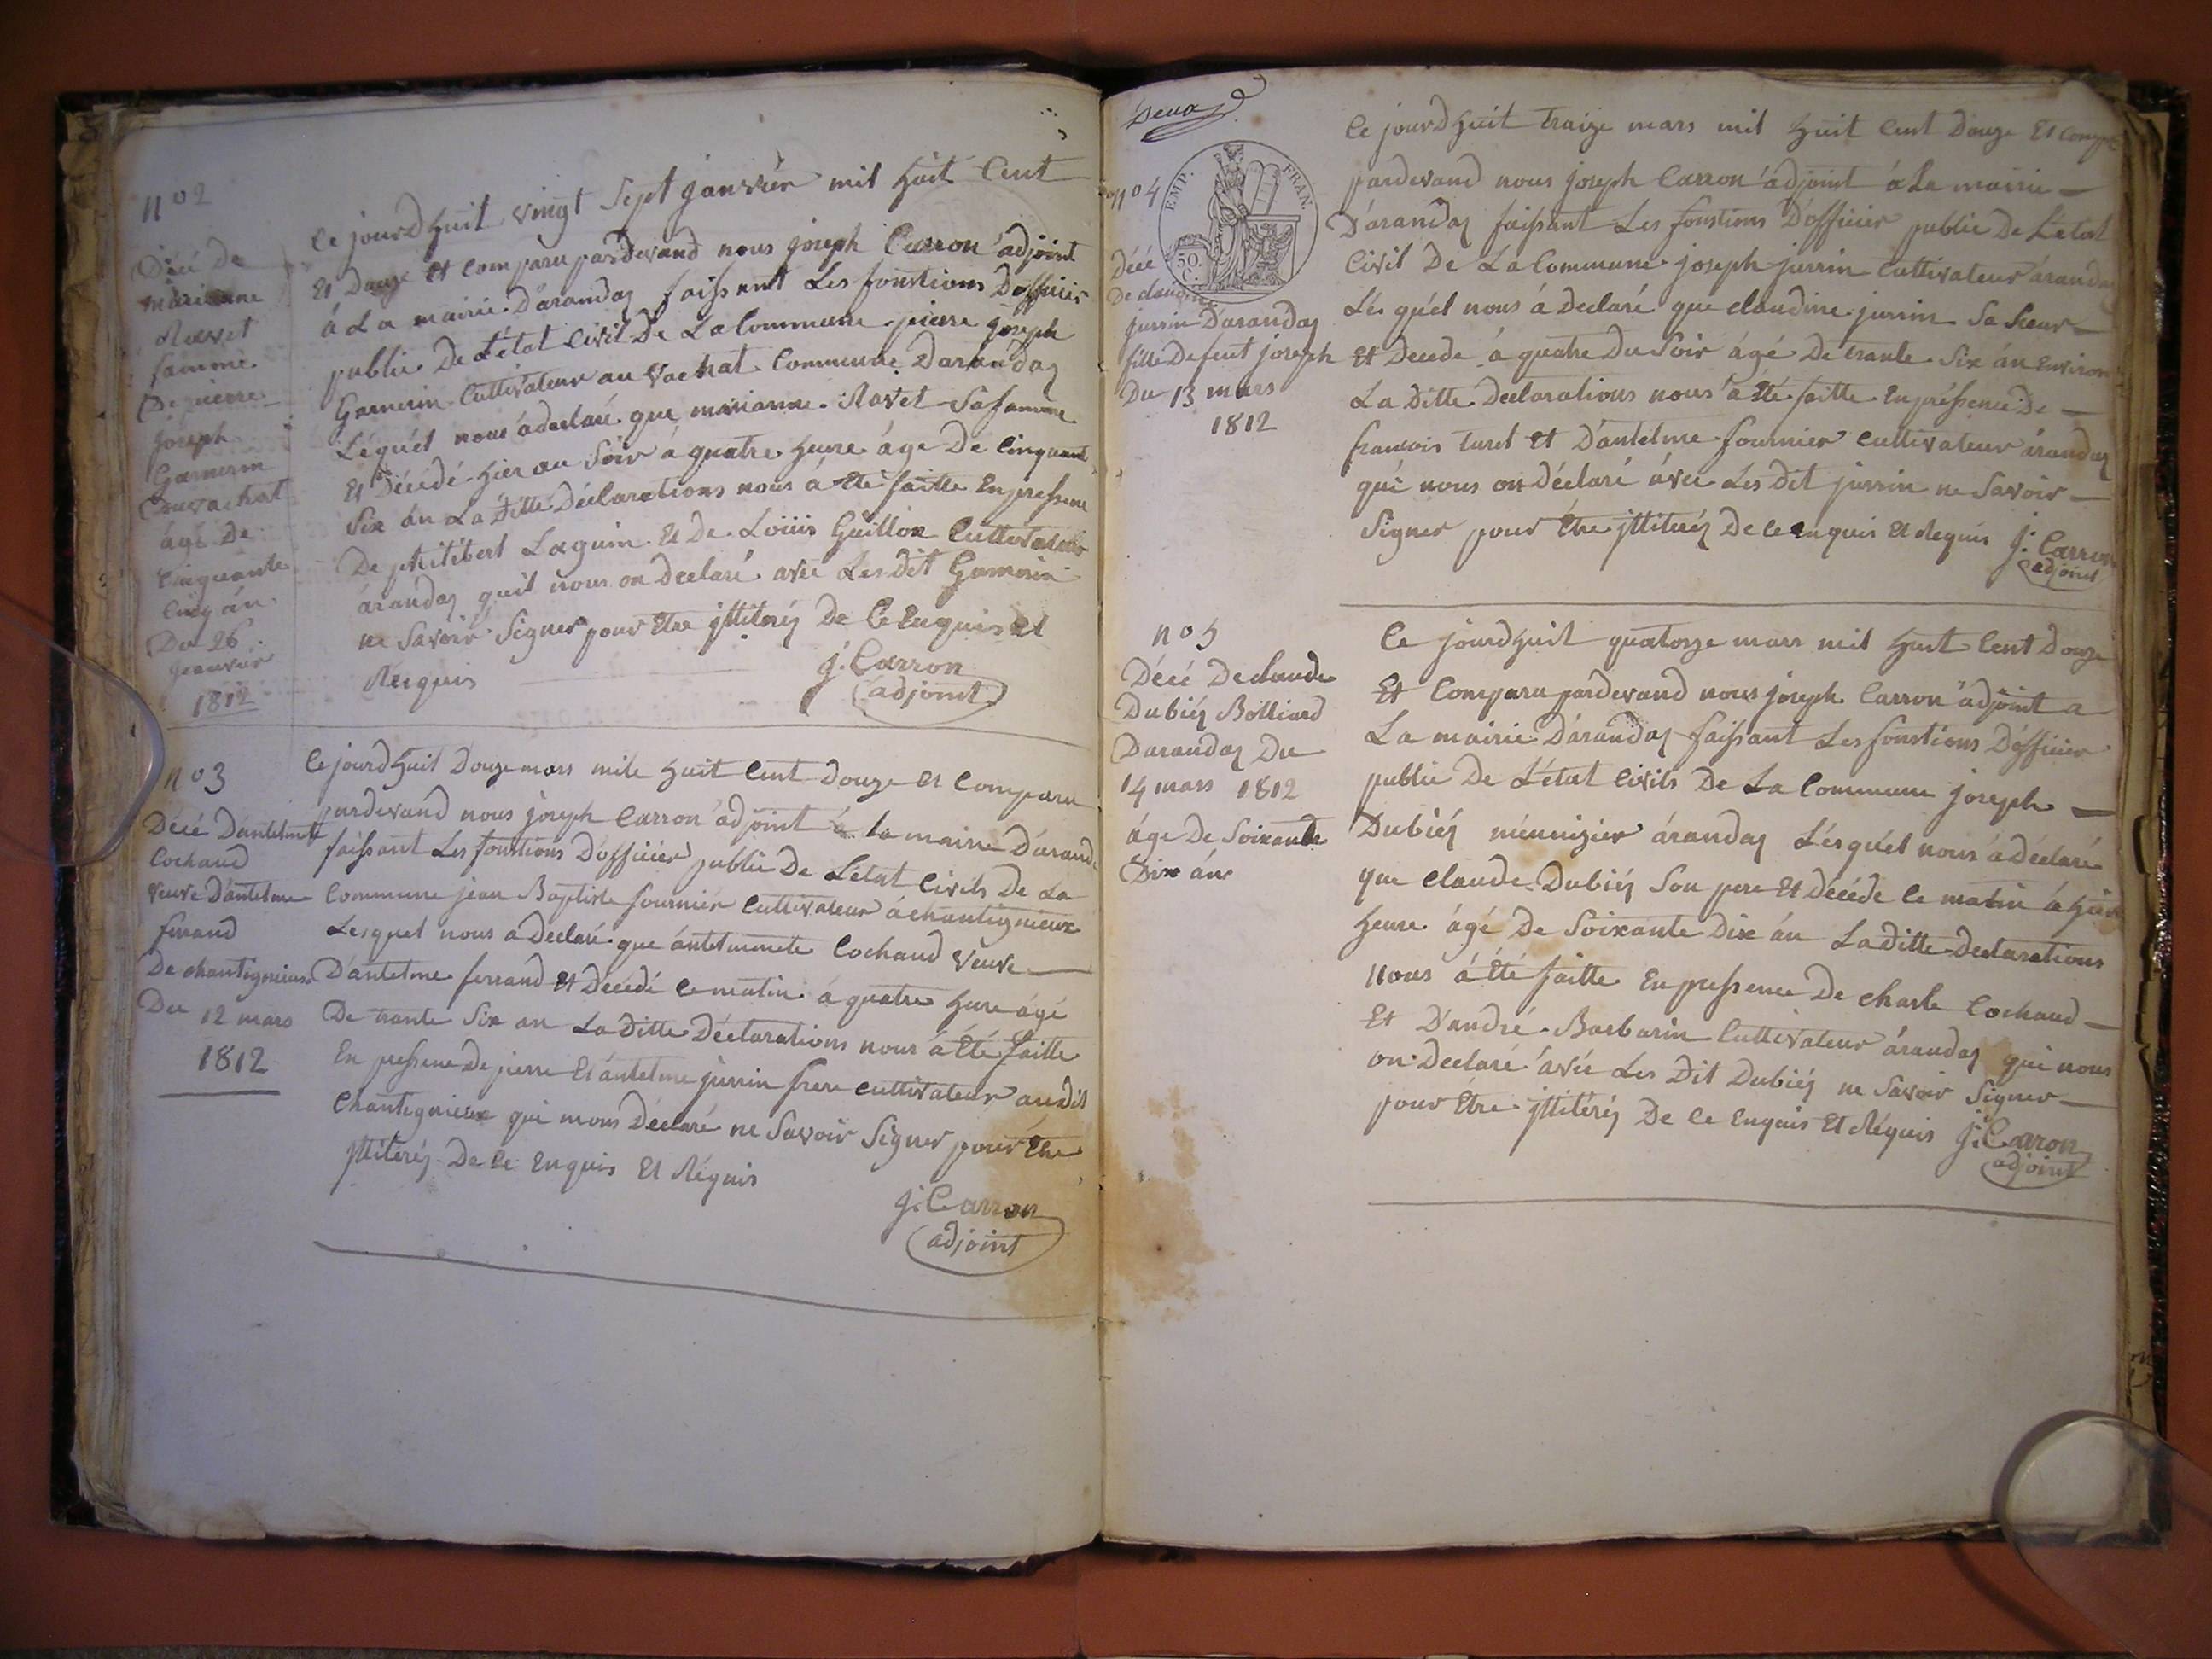 n° 2
Décé de
marianne
Ravet
famme
De pierre
joseph
Garnerin
Cauvachat
âgé De
Cinquante
Cinq án
Du 26
Jeanvier
1812
Ce jourd huit vingt Sept janvier mil huit Cent
Et Douze Et Comparu pardevand nous joseph Carron adjoint
á La mairie D'arandas faissant Les fonstions D'officier
public De L'état Civil De La Commune pierre joseph
Garnerin Cultivateur au vachat Commune Darandas
Léquél nous á declaré que marianne Ravet Sa famme
Et Décédé hier au Soir á quatre heure âge De Cinquant
Six án La Ditte Déclarations nous á été faitte En pressence
De Laguin Et De Loüis Guillon Cultivateur
árandas quil nous on declaré avec Les Dit Garnerin
ne Savoir Signer pour être jntiteréz De Ce Enquis et
Réquis
J. Carron
adjoint
n° 3
Décé D'antelmette
Cochaud
veuve D'antelme
ferrand
De chantignieux
Du 12 mars
1812
Ce jourd huit Douze mars mile huit Cent Douze Et Comparu
pardevand nous joseph Carron adjoint á la mairie D'arand
faissant Les fonstions D'officier public De L'état Civils De La
Commune jean Baptiste fournier Cultivateur á chantignieux
Lesquel nous a Declaré que ántelmmete Cochaud veuve
D'antelme ferrand Et Décédé Ce matin á quatre hure ágé
De trante Six an La Ditte Déclarations nous á été faitte
En pressence De pierre Et ántelme jurrin frere cultivateur audit
Chantignieux qui mons Déclaré ne Savoir Signer pour être
jntiteréz De Ce Enquis Et Réquis
J. Carron
adjoint
Deux
EMP. FRAN.
50. C.
n° 4
Décé
De claudine
jurrin D'arandas
fille De feut joseph
Du 13 mars
1812
Ce jourd huit traize mars mil huit Cent Douze Et Compa
pardevand nous joseph Carron adjoint á La mairie
D'arandas faissant Les fonstions D'officier public De L'état
Civil De La Commune joseph jurrin Cultivateur árandas
Lés quél nous á Declaré que claudine jurrin Sa Sœur
Et Decede á quatre Du Soir ágé De trante Six án Environ
La Ditte Declarations nous á été faitte En préssence De
francois turet Et D'antelme fournier Cultivateur árandas
qui nous on Déclaré ávec Les Dit jurrin ne Savoir
Signer pour être jntiteréz De Ce enquis Et Requis J. Carron
adjoint
n° 5
Décé De claude
Dubiéz Bolliard
Darandas Du
14 mars 1812
áge De Soixante
Dix án
Ce jourd huit quatorze mars mil huit Cent Douze
Et Comparu pardevand nous joseph Carron adjoint a
La mairie D'arandas faissant Les fonstions D'officier
public De L'état Civils De La Commune joseph
Dubiéz ménuizier árandas Lésquél nous á Déclaré
que claude Dubiéz Son pere Et Décéde Ce matin á huit
heure ágé De Soixante Dix án La Ditte Declarations
nous á été faitte En pressence De charle Cochaud
Et D'andré Barbarin Cultivateur árandas qui nous
on Declaré ávec Les Dit Dubiéz ne Savoir Signer
pour être jntitéréz De Ce Enquis Et Réquis J. Carron
adjoint